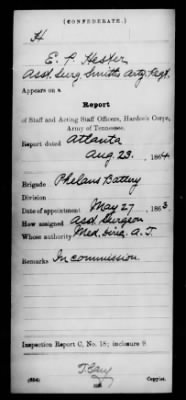 (CONFEDERATE.)
H
E. P. Hester
Asst. Surg. Smith's Arty. Regt.
Appears on a
Report
of Staff and Acting Staff Officers, Hardee's Corps,
Army of Tennessee.
Report dated Atlanta
Aug. 23, 1864
Brigade Phelans Battery
Division
Date of appointment May 27, 1863
How assigned Asst. Surgeon
Whose authority Med. Direc. A. T.
Remarks In commission.
Inspection Report C, No. 18; inclosure 9
(654)
Copyist.